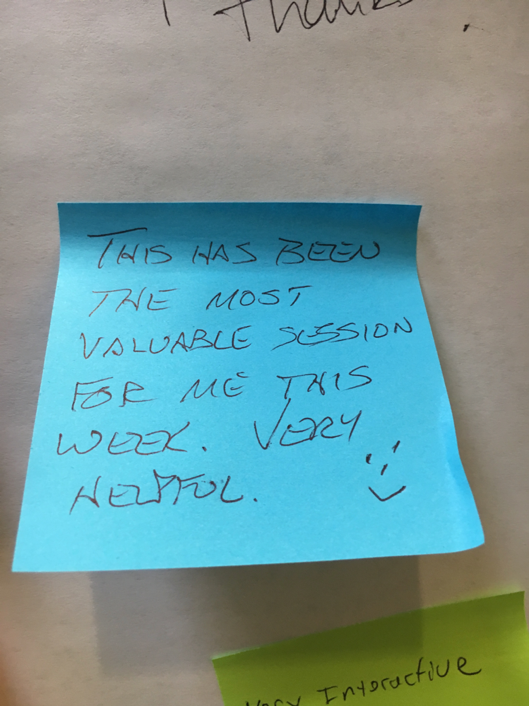 Thanks.
THIS HAS BEEN
THE MOST
VALUABLE SESSION
FOR ME THIS
WEEK. VERY
HELPFUL.
Very Interactive